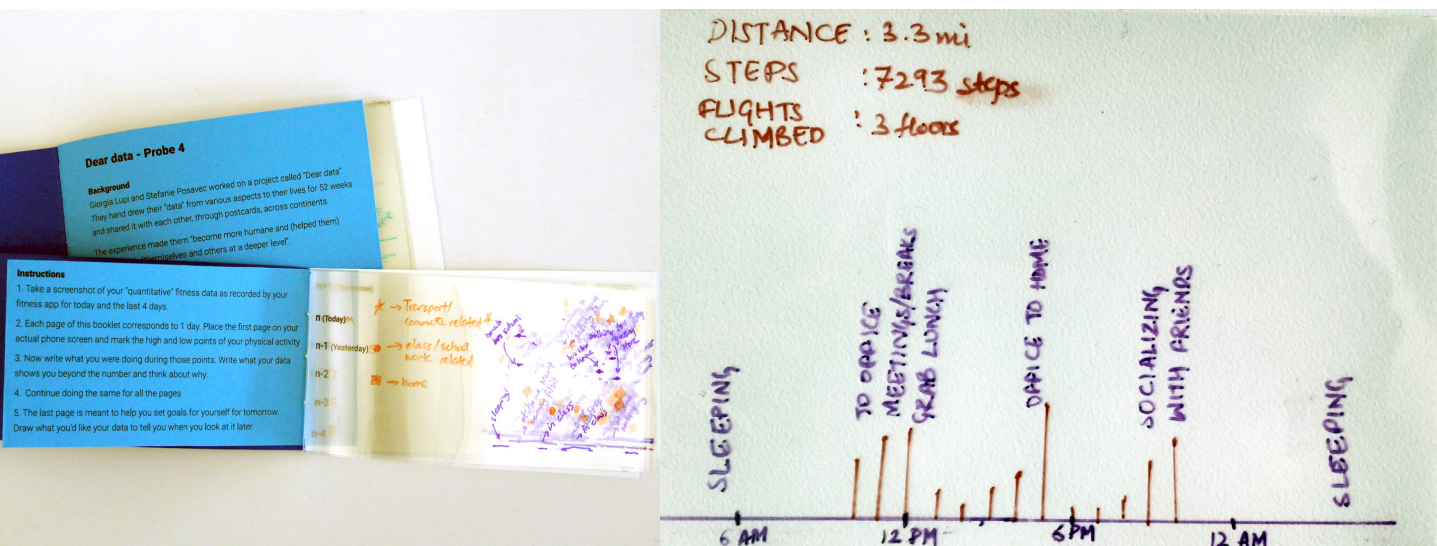 Dear data - Probe 4
Background
Giorgia Lupi and Stefanie Posavec worked on a project called "Dear data".
They hand drew their "data" from various aspects to their lives for 52 weeks
and shared it with each other, through postcards, across continents.
The experience made them "become more humane and (helped them)
themselves and others at a deeper level".
Instructions
1. Take a screenshot of your "quantitative" fitness data as recorded by your
fitness app for today and the last 4 days.
2. Each page of this booklet corresponds to 1 day. Place the first page on your
actual phone screen and mark the high and low points of your physical activity
3. Now write what you were doing during those points. Write what your data
shows you beyond the number and think about why.
4. Continue doing the same for all the pages
5. The last page is meant to help you set goals for yourself for tomorrow.
Draw what you'd like your data to tell you when you look at it later.
n+1 (Tomorrow)
n (Today)
n-1 (Yesterday)
n-2
n-3
n-4
→ Transport/
commute related
→ class/school
work related
→ home
sleeping
in class
DISTANCE : 3.3 mi
STEPS : 7293 steps
FLIGHTS
CLIMBED : 3 floors
SLEEPING
TO OFFICE
MEETINGS/BREAKS
GRAB LUNCH
OFFICE TO HOME
SOCIALIZING
WITH FRIENDS
SLEEPING
6 AM
12 PM
6 PM
12 AM